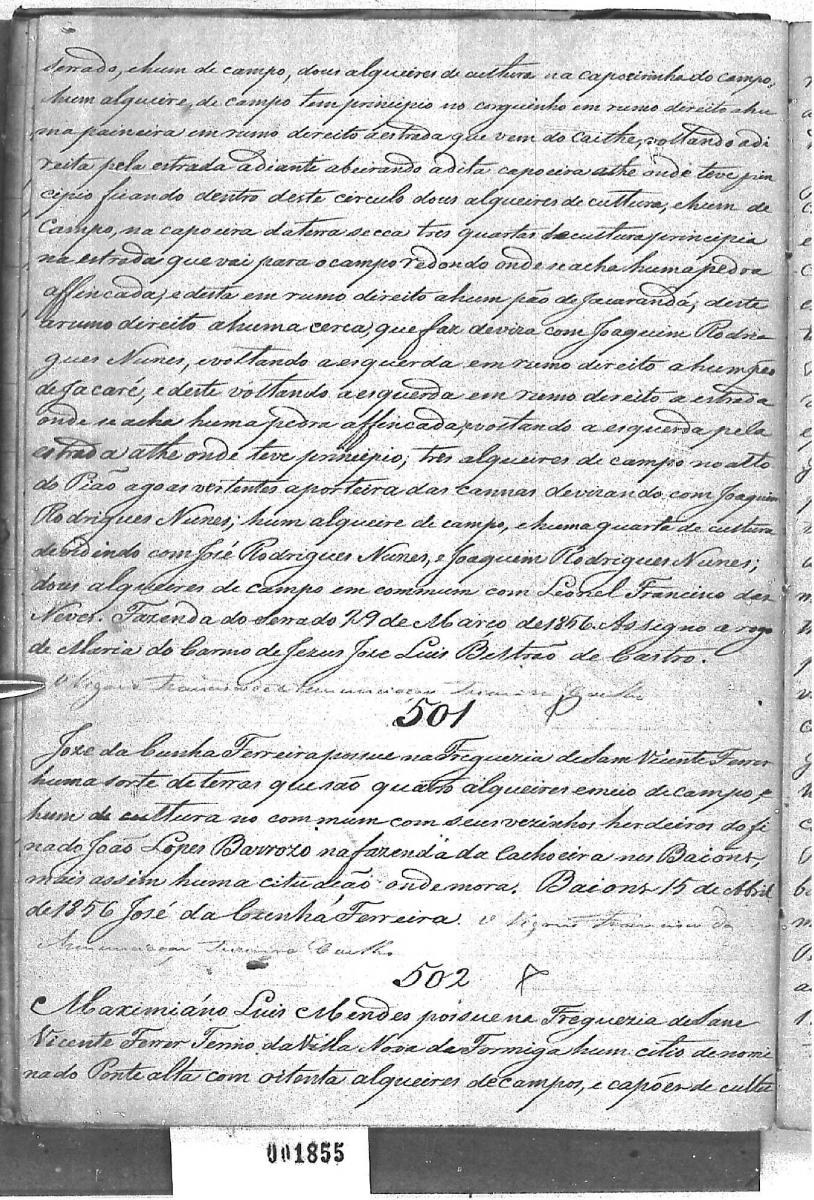 serrado, e hum de campo, dous alqueires de cultura na capoeirinha do campo,
hum alqueire, de campo tem principio no corguinho em rumo direito ahu
ma paineira em rumo direito a estrada que vem do Caithe, voltando adi
reita pela estrada adiante abeirando a dita capoeira athe onde teve prin
cipio ficando dentro deste circulo dous alqueires de cultura, e hum de
Campo, na capoeira da terra secca tres quartas de cultura principia
na estrada que vai para o campo redondo onde se acha huma pedra
affincada, e desta em rumo direito a hum páo de Jacaranda, deste
a rumo direito a huma cerca, que faz deviza com Joaquim Rodri-
gues Nunes, e voltando a esquerda em rumo direito a hum páo
de Jacaré, e deste voltando a esquerda em rumo direito a estrada
onde se acha huma pedra affincada, voltando a esquerda pela
estrada athe onde teve principio; tres alqueires de campo no alto
do Pião agoas vertentes a porteira das cannas devizando com Joaquim
Rodrigues Nunes; hum alqueire de campo, e huma quarta de cultura
devidindo com José Rodrigues Nunes, e Joaquim Rodrigues Nunes;
dous alqueires de campo em commum com Leonel Francisco das
Neves. Fazenda do Serrado 29 de Março de 1856. Assigno a rogo
de Maria do Carmo de Jezus Joze Luis Beltrão de Castro.
O Vigario Francisco da Annunciacam Teixeira Coelho
501
Joze da Cunha Ferreira possue na Freguezia de Sam Vicente Ferrer
huma sorte de terras que são quatro alqueires e meio de campo, e
hum de cultura no commum com seus vezinhos herdeiros do fi
nado João Lopes Barrozo na fazenda da Cachoeira nos Baions,
mais assim huma citudção onde mora. Baions 15 de Abril
de 1856 José da Cunha Ferreira. O Vigario Francisco da
Annunciacam Teixeira Coelho
502
Maximiáno Luis Mendes possue na Freguezia de Sam
Vicente Ferrer Termo da Villa Nova da Formiga hum citio denomi
nado Ponte alta com oitenta alqueires de campos, e capões de cultu
001855